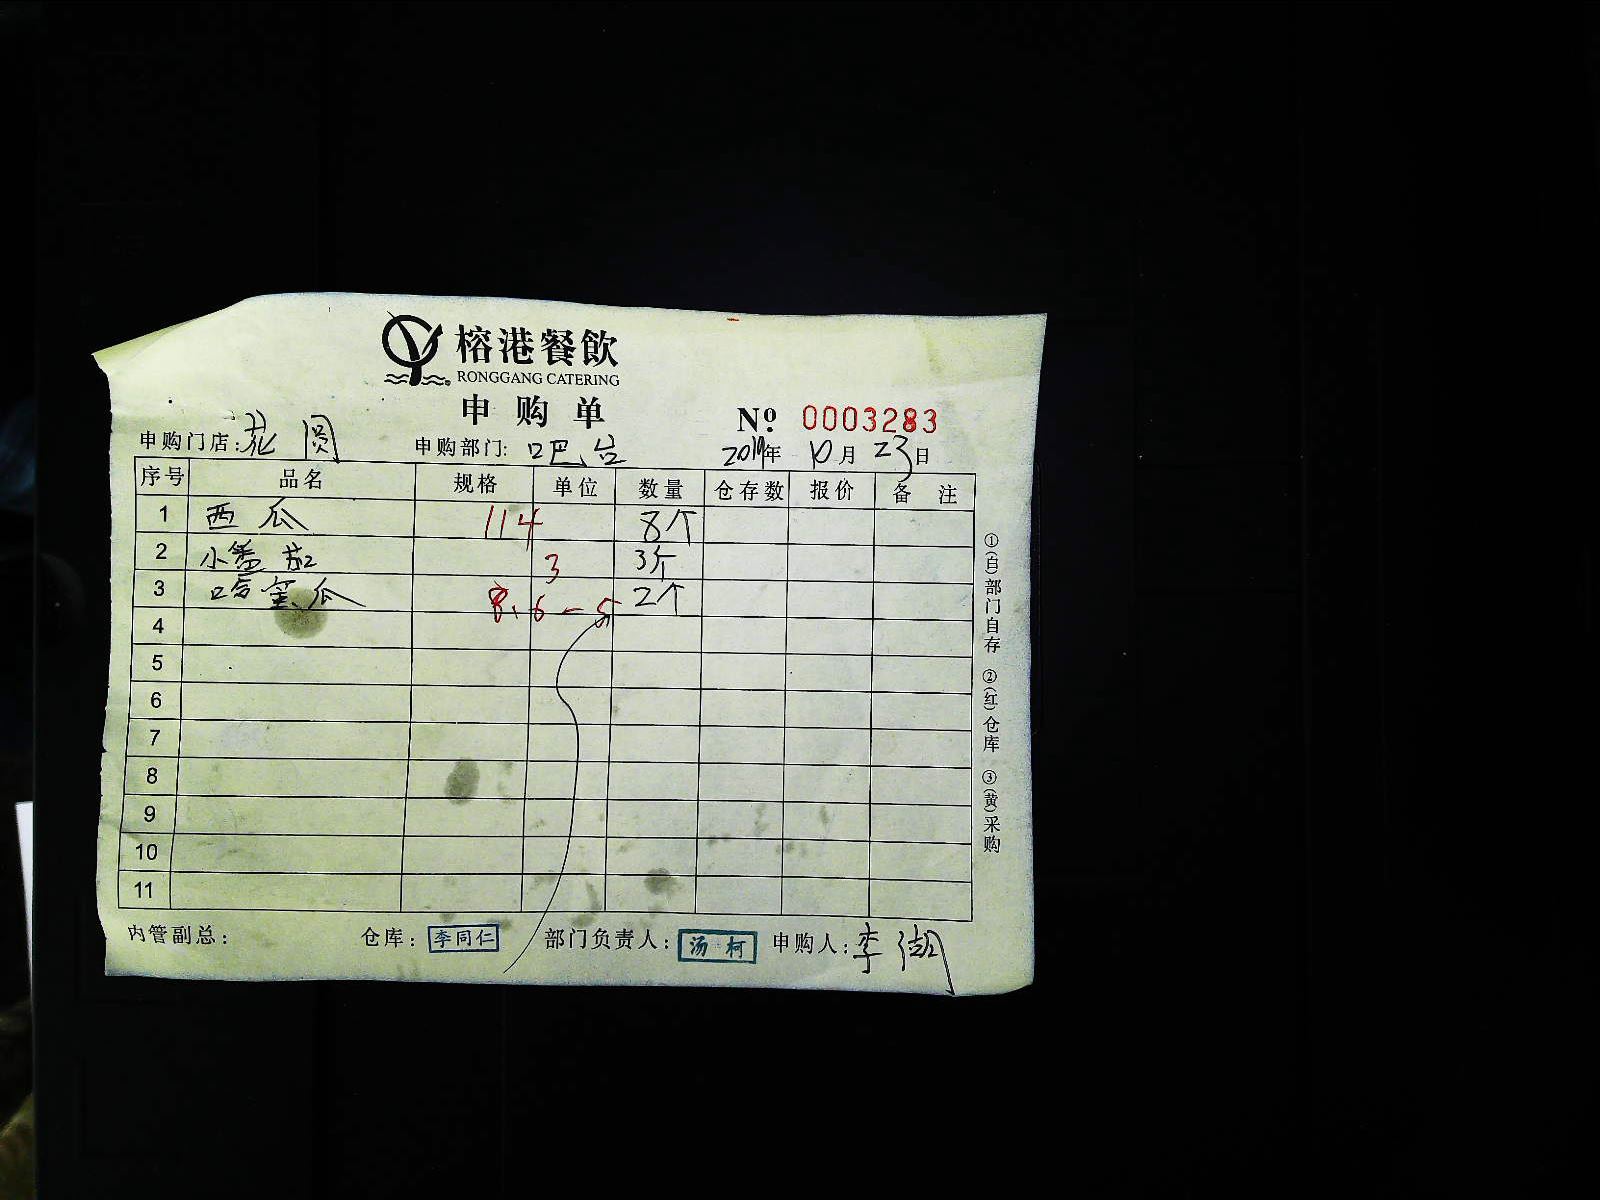 榕港餐飲
RONGGANG CATERING
申购单
№ 0003283
申购门店:花圆 申购部门:吧台 2019年10月23日
序号 品名 规格 单位 数量 仓存数 报价 备注
1 西瓜 114 8个
2 小番茄 3 3斤
3 哈蜜瓜 8.6-5 2个
4
5
6
7
8
9
10
11
①(白)部门自存 ②(红)仓库 ③(黄)采购
内管副总: 仓库:李同仁 部门负责人:汤柯 申购人:李湖